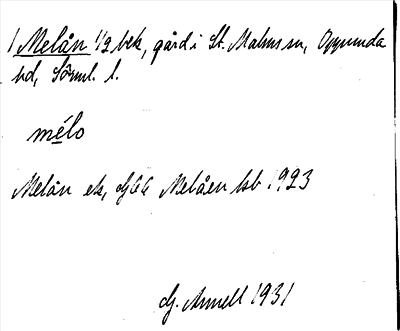 1 Melån 1/2 bek, gård i St. Malms sn, Oppunda
hd, Sörml. l.
mélo
Melån ek, Melåen kb 1923
Arnell 1931